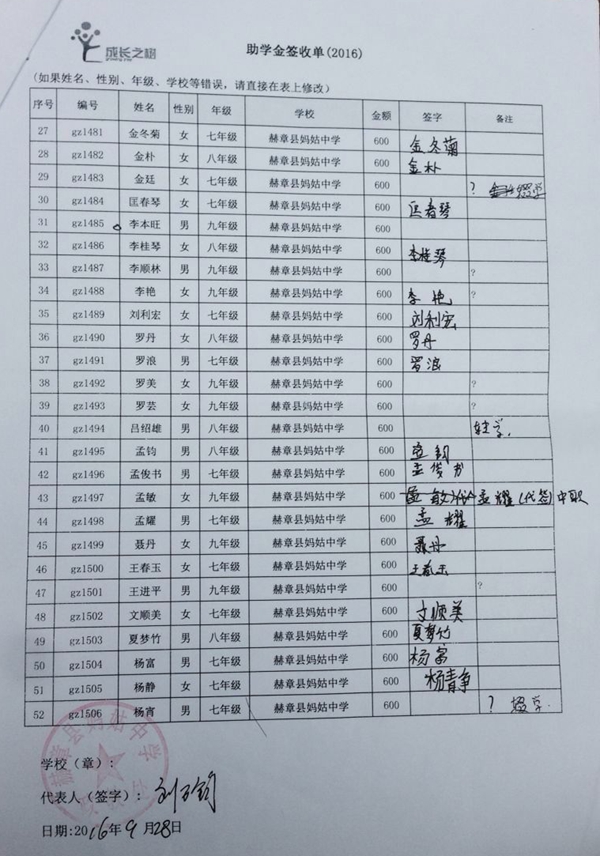 成长之树
助学金签收单(2016)
(如果姓名、性别、年级、学校等错误，请直接在表上修改)
序号 编号 姓名 性别 年级 学校 金额 签字 备注
27 gz1481 金冬菊 女 七年级 赫章县妈姑中学 600 金冬菊
28 gz1482 金朴 女 八年级 赫章县妈姑中学 600 金朴
29 gz1483 金廷 女 七年级 赫章县妈姑中学 600 ? 辍学
30 gz1484 匡春琴 女 七年级 赫章县妈姑中学 600 匡春琴
31 gz1485 李本旺 男 九年级 赫章县妈姑中学 600
32 gz1486 李桂琴 女 八年级 赫章县妈姑中学 600 李桂琴
33 gz1487 李顺林 男 九年级 赫章县妈姑中学 600 ?
34 gz1488 李艳 女 九年级 赫章县妈姑中学 600 李艳
35 gz1489 刘利宏 女 七年级 赫章县妈姑中学 600 刘利宏
36 gz1490 罗丹 女 八年级 赫章县妈姑中学 600 罗丹
37 gz1491 罗浪 男 七年级 赫章县妈姑中学 600 罗浪
38 gz1492 罗美 女 九年级 赫章县妈姑中学 600 ?
39 gz1493 罗芸 女 九年级 赫章县妈姑中学 600 ?
40 gz1494 吕绍雄 男 八年级 赫章县妈姑中学 600 转学.
41 gz1495 孟钧 男 八年级 赫章县妈姑中学 600 孟钧
42 gz1496 孟俊书 男 七年级 赫章县妈姑中学 600 孟俊书
43 gz1497 孟敏 女 九年级 赫章县妈姑中学 600 孟敏 孟耀(代签)中职
44 gz1498 孟耀 男 七年级 赫章县妈姑中学 600 孟耀
45 gz1499 聂丹 女 八年级 赫章县妈姑中学 600 聂丹
46 gz1500 王春玉 女 七年级 赫章县妈姑中学 600 王春玉
47 gz1501 王进平 男 九年级 赫章县妈姑中学 600 ?
48 gz1502 文顺美 女 七年级 赫章县妈姑中学 600 文顺美
49 gz1503 夏梦竹 男 八年级 赫章县妈姑中学 600 夏梦竹
50 gz1504 杨富 男 七年级 赫章县妈姑中学 600 杨富
51 gz1505 杨静 女 七年级 赫章县妈姑中学 600 杨静
52 gz1506 杨宵 男 七年级 赫章县妈姑中学 600 ? 辍学.
学校（章）：
赫章县妈姑中学
代表人（签字）：
日期:2016年9月28日